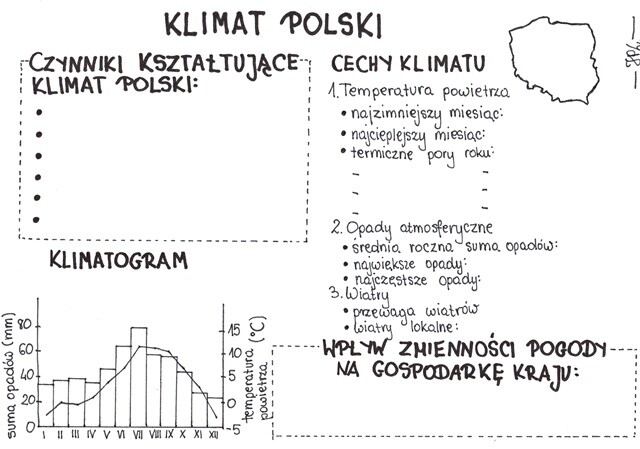 KLIMAT POLSKI
CZYNNIKI KSZTAŁTUJĄCE
KLIMAT POLSKI:
CECHY KLIMATU
1. Temperatura powietrza
• najzimniejszy miesiąc:
• najcieplejszy miesiąc:
• termiczne pory roku:
- -
- -
- -
2. Opady atmosferyczne
• średnia roczna suma opadów:
• największe opady:
• najczęstsze opady:
3. Wiatry
• przewaga wiatrów
• wiatry lokalne:
KLIMATOGRAM
suma opadów (mm)
80
60
40
20
0
I II III IV V VI VII VIII IX X XI XII
15
10
5
0
-5
temperatura (°C)
powietrza
WPŁYW ZMIENNOŚCI POGODY
NA GOSPODARKĘ KRAJU: